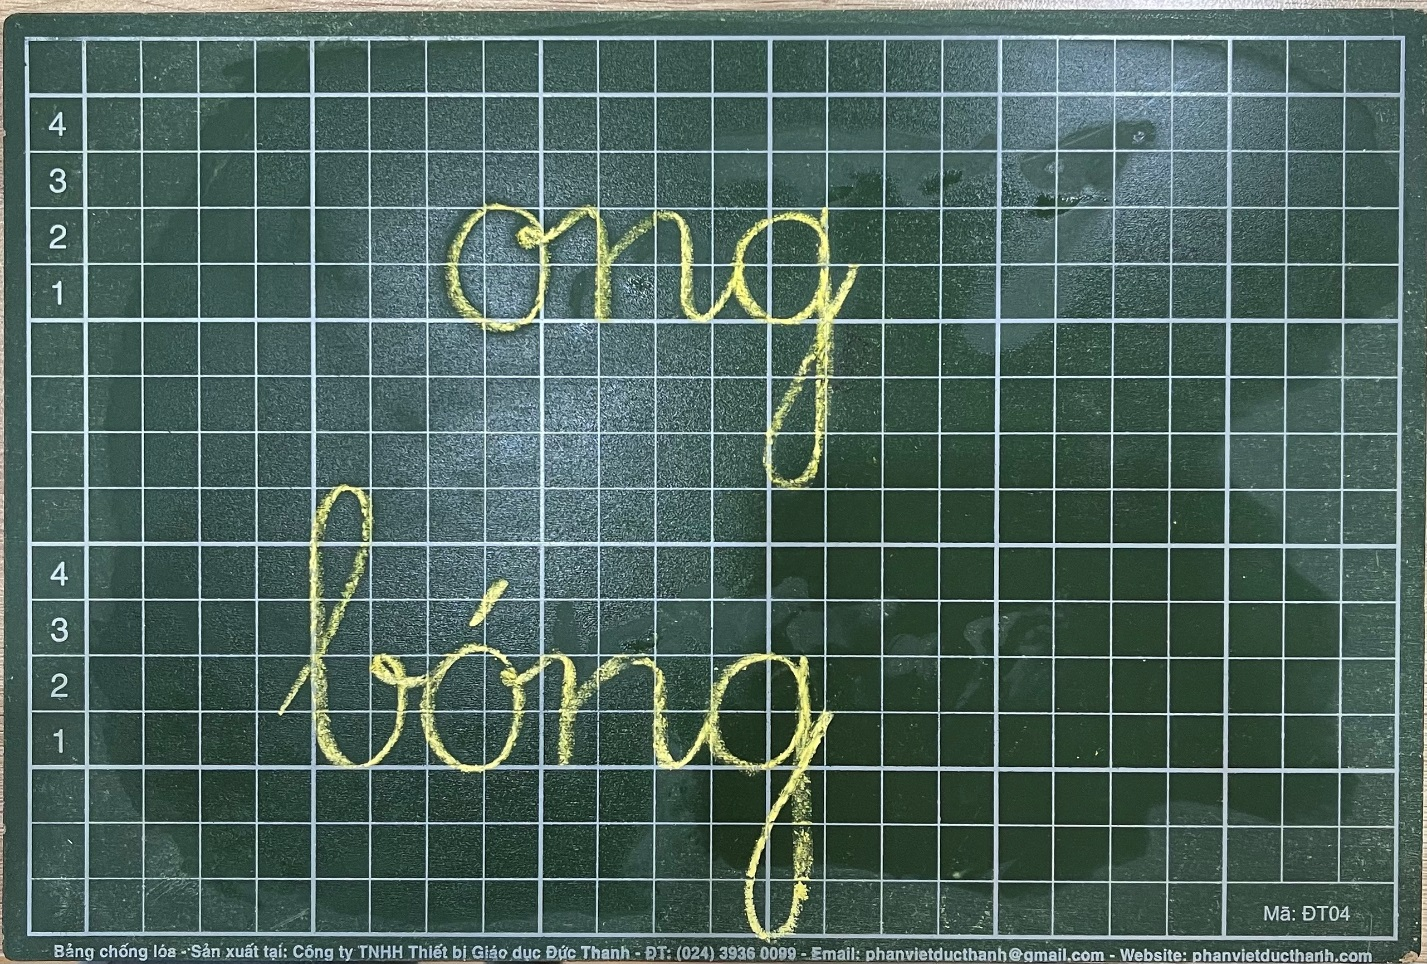 4
3
2
1
ong
4
3
2
1
bóng
Mã: ĐT04
Bảng chống lóa - Sản xuất tại: Công ty TNHH Thiết bị Giáo dục Đức Thanh - ĐT: (024) 3936 0099 - Email: phanvietducthanh@gmail.com - Website: phanvietducthanh.com